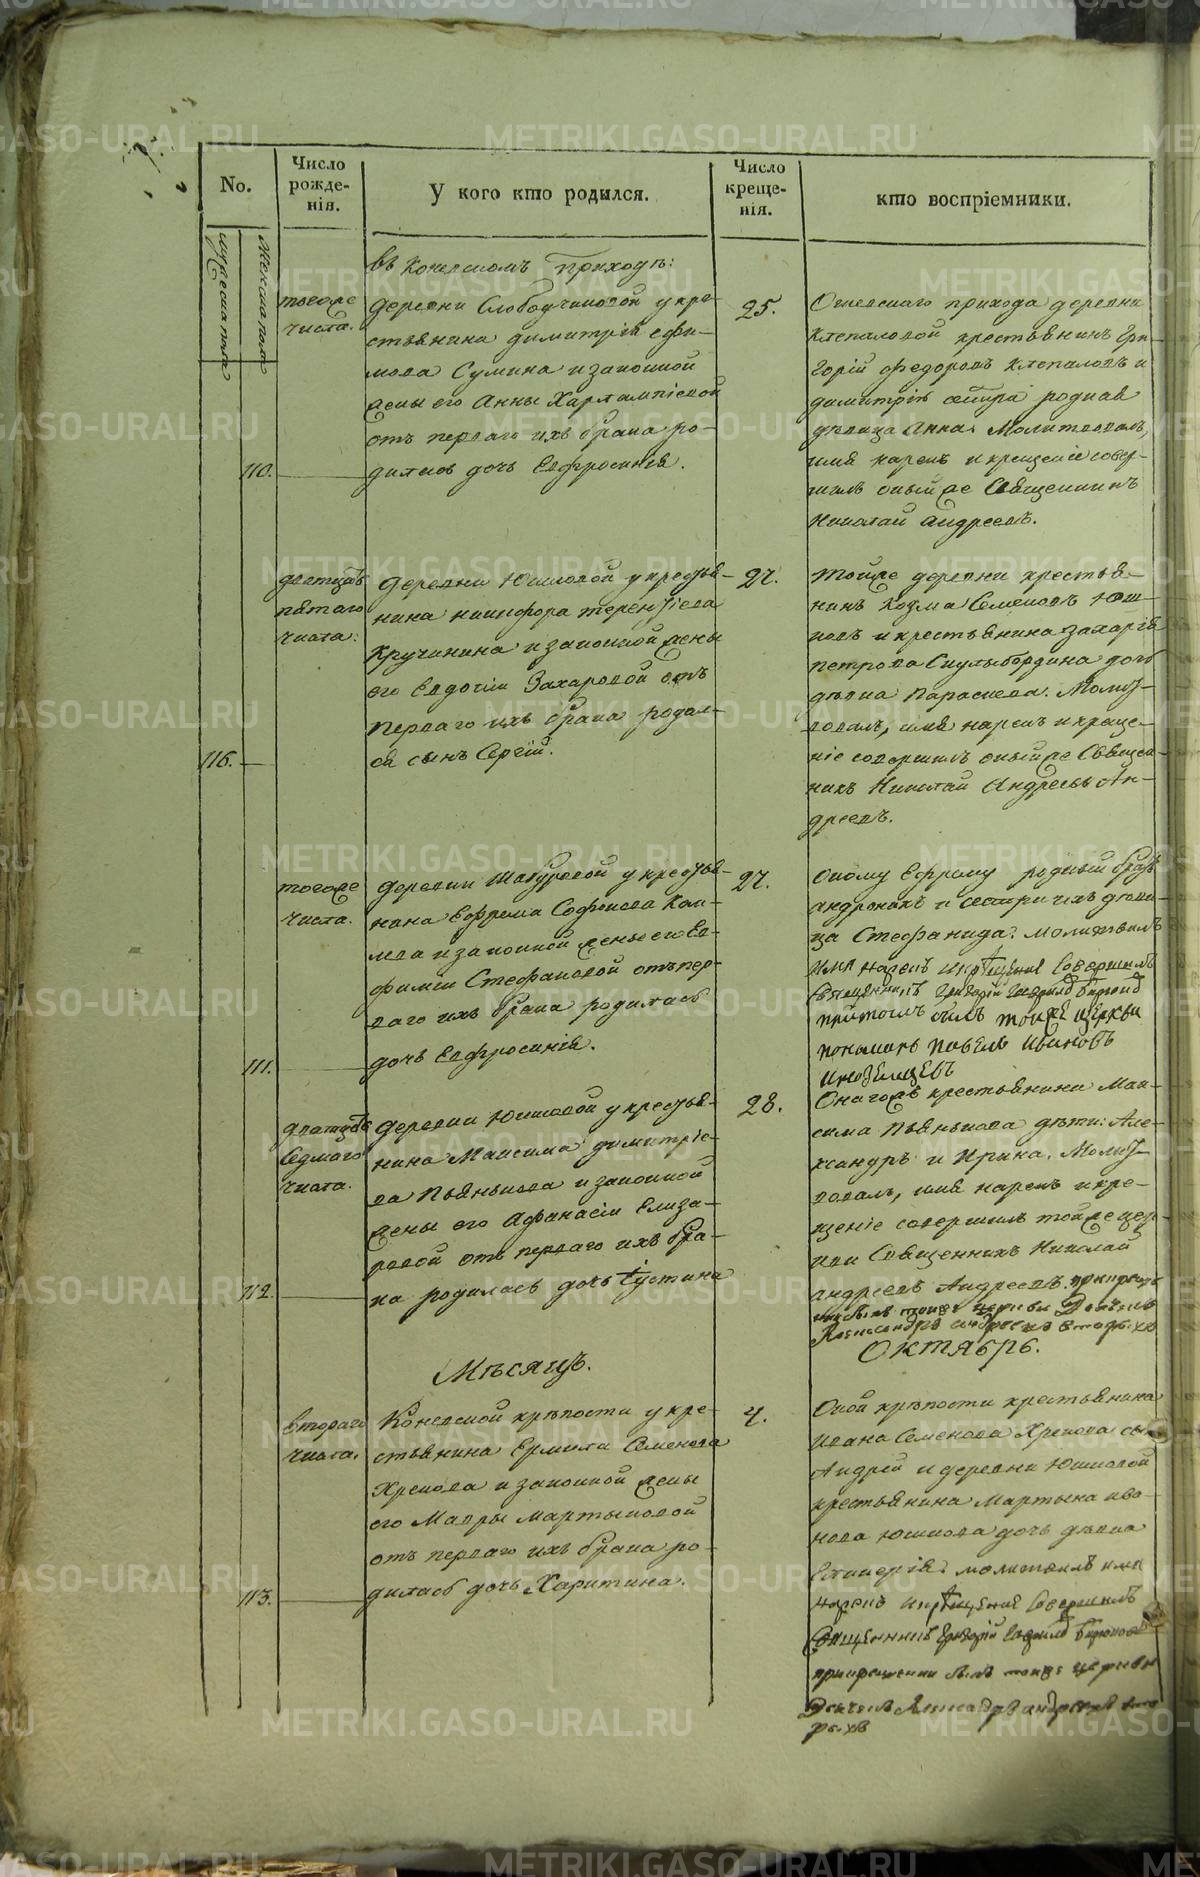 No.
Число рожде-нія.
У кого кто родился.
Число креще-нія.
кто воспріемники.
мужеска пола
женска пола
въ Коневскомъ приходѣ:
тогоже
числа.
деревни Слободчиковой у кре-
стьянина Димитрія Ефи-
мова Сумина и законной
жены его Анны Харлампіевой
отъ перваго ихъ брака ро-
110.
дилась дочь Евфросинія.
25.
прихода деревни
Клепаловой крестьянинъ Гри-
горій Федоровъ Клепаловъ и
Димитрія сестра родная
дѣвица Анна. Молитвовалъ,
имя нарекъ и крещеніе совер-
шилъ оный же Священникъ
Николай Андреевъ.
двадцать
пятаго
числа.
деревни Юшковой у крестья-
нина Никифора Терентіева
Кручинина и законной жены
его Евдокіи Захаровой отъ
перваго ихъ брака родил-
116.
ся сынъ Сергій.
27.
тойже деревни крестья-
нинъ Козма Семеновъ Юш-
ковъ и крестьянина Захарія
Петрова Скулыбердина дочь
дѣвка Параскева. Молит-
вовалъ, имя нарекъ и креще-
ніе совершилъ оный же Священ-
никъ Николай Андреевъ Ан-
дреевъ.
тогоже
числа.
деревни Шабуровой у крестья-
нина Ефрема Софонова
и законной жены его Ев-
фиміи Стефановой отъ пер-
ваго ихъ брака родилась
111.
дочь Евфросинія.
27.
Оному Ефрему родный братъ
Андроникъ и сестра ихъ дѣви-
ца Стефанида. Молитвилъ
имя нарекъ и крещение совершилъ
священникъ Григорій Гаврилов Бирюков
притомъ былъ тойже церкви
пономарь Павелъ Ивановъ
Иноземцевъ
двадцать
седмаго
числа.
деревни Юшковой у крестья-
нина Максима Димитріе-
ва Пьянкова и законной
жены его Афанасіи Елиза-
ровой отъ перваго ихъ бра-
112.
ка родилась дочь Іустина
28.
Онагожъ крестьянина Мак-
сима Пьянкова дѣти: Але-
ксандръ и Ирина. Молит-
вовалъ, имя нарекъ и кре-
щеніе совершилъ тойже цер-
кви Священникъ Николай
Андреевъ Андреевъ. при креще
нии былъ тойже церкви Дьячекъ
Александръ Андреевъ
Мѣсяцъ.
ОКТЯБРЬ.
втораго
числа.
Коневской крѣпости у кре-
стьянина Ермила Семенова
Хренова и законной жены
его Мавры Мартыновой
отъ перваго ихъ брака ро-
113.
дилась дочь Харитина.
4.
Оной крѣпости крестьянина
Ивана Семенова Хренова сынъ
Андрей и деревни Юшковой
крестьянина Мартына Ива-
нова Юшкова дочь дѣвка
Гликерія: молитвилъ имя
нарекъ и крещение совершилъ
Священникъ Григорій Гаврилов Бирюков
при крещении былъ тойже церкви
Дьячекъ Александръ Андреевъ